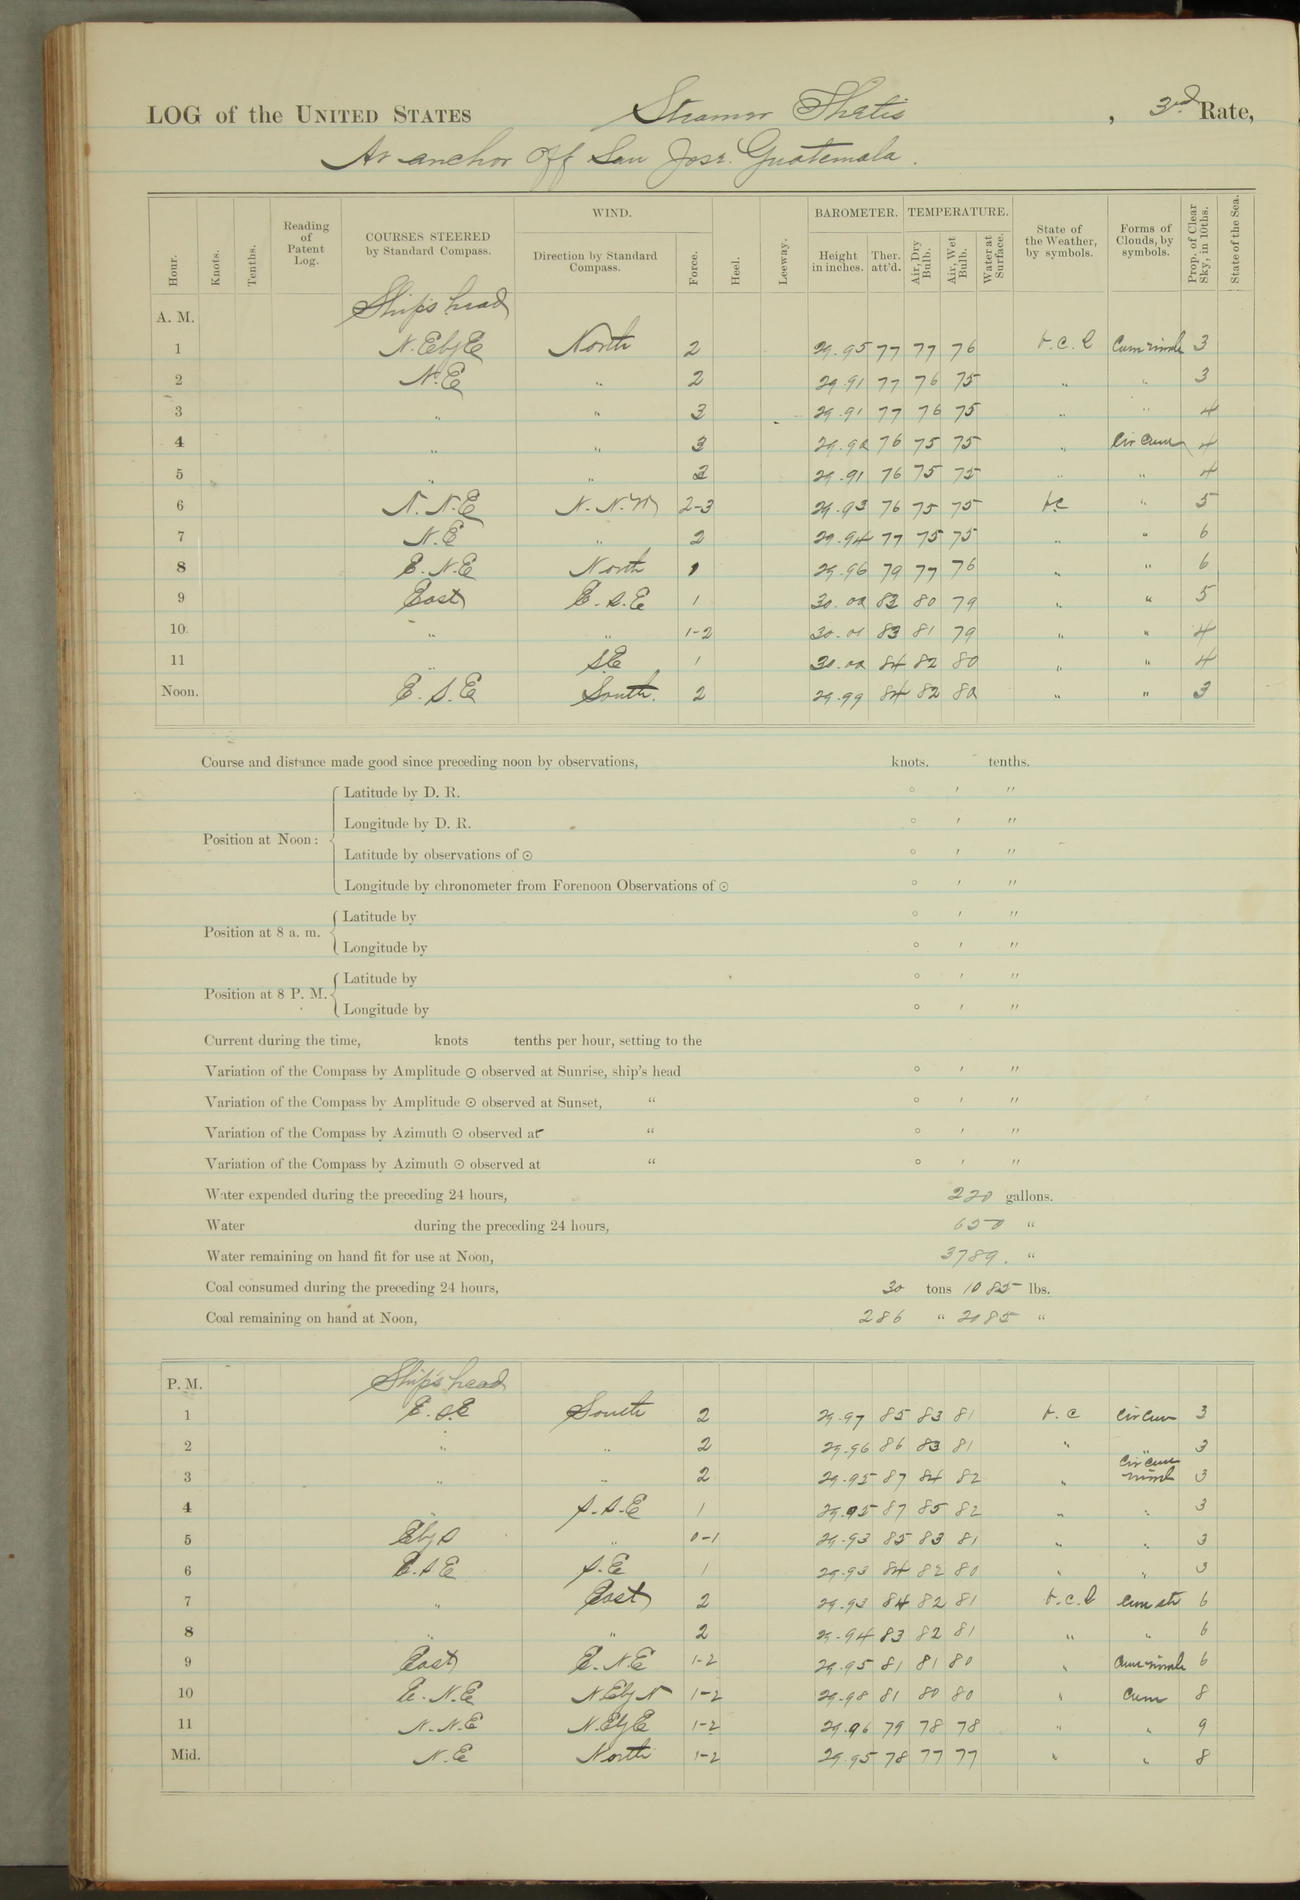 LOG of the UNITED STATES Steamer Thetis , 3rd Rate,
At anchor off San José Guatemala.
Hour. Knots. Tenths. Reading of Patent Log. COURSES STEERED by Standard Compass. WIND. Direction by Standard Compass. Force. Heel. Leeway. BAROMETER. Height in inches. Ther. att'd. TEMPERATURE. Air, Dry Bulb. Air, Wet Bulb. Water at Surface. State of the Weather, by symbols. Forms of Clouds, by symbols. Prop. of Clear Sky, in 10ths. State of the Sea.
A. M. Ship's head
1 N.EbyE North 2 29.95 77 77 76 b.c.l Cum nimb 3
2 N.E " 2 29.91 77 76 75 " " 3
3 " " 3 29.91 77 76 75 " " 4
4 " " 3 29.90 76 75 75 " Cir Cum 4
5 " " 3 29.91 76 75 75 " " 4
6 N.N.E N.N.W 2-3 29.93 76 75 75 b.c " 5
7 N.E " 2 29.94 77 75 75 " " 6
8 E.N.E North 1 29.96 79 77 76 " " 6
9 East E.S.E 1 30.00 83 80 79 " " 5
10 " " 1-2 30.01 83 81 79 " " 4
11 " S.E 1 30.00 84 82 80 " " 4
Noon. E.S.E South. 2 29.99 84 82 80 " " 3
Course and distance made good since preceding noon by observations, knots. tenths.
Position at Noon: Latitude by D. R. ° ′ ″
Longitude by D. R. ° ′ ″
Latitude by observations of ⊙ ° ′ ″
Longitude by chronometer from Forenoon Observations of ⊙ ° ′ ″
Position at 8 a. m. Latitude by ° ′ ″
Longitude by ° ′ ″
Position at 8 P. M. Latitude by ° ′ ″
Longitude by ° ′ ″
Current during the time, knots tenths per hour, setting to the
Variation of the Compass by Amplitude ⊙ observed at Sunrise, ship's head ° ′ ″
Variation of the Compass by Amplitude ⊙ observed at Sunset, " ° ′ ″
Variation of the Compass by Azimuth ⊙ observed at " ° ′ ″
Variation of the Compass by Azimuth ⊙ observed at " ° ′ ″
Water expended during the preceding 24 hours, 220 gallons.
Water during the preceding 24 hours, 650 "
Water remaining on hand fit for use at Noon, 3789. "
Coal consumed during the preceding 24 hours, 30 tons 1085 lbs.
Coal remaining on hand at Noon, 286 " 2185 "
P. M. Ship's head
1 E.S.E South 2 29.97 85 83 81 b.c Cir Cum 3
2 " " 2 29.96 86 83 81 " " 3
3 " " 2 29.95 87 84 82 " Cir Cum nimb 3
4 " S.S.E 1 29.95 87 85 82 " " 3
5 EbyS " 0-1 29.93 85 83 81 " " 3
6 E.S.E S.E 1 29.93 84 82 80 " " 3
7 " East 2 29.93 84 82 81 b.c.l Cum str 6
8 " " 2 29.94 83 82 81 " " 6
9 East E.N.E 1-2 29.95 81 81 80 " Cum nimb 6
10 E.N.E N.EbyN 1-2 29.98 81 80 80 " Cum 8
11 N.N.E N.EbyE 1-2 29.96 79 78 78 " " 9
Mid. N.E North 1-2 29.95 78 77 77 " " 8